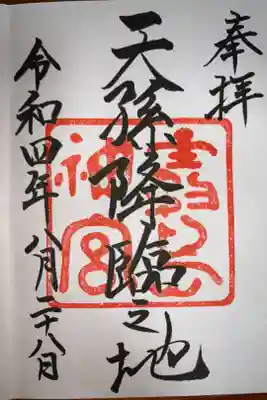 奉拝
天孫降臨之地
神宮
令和四年八月二十八日